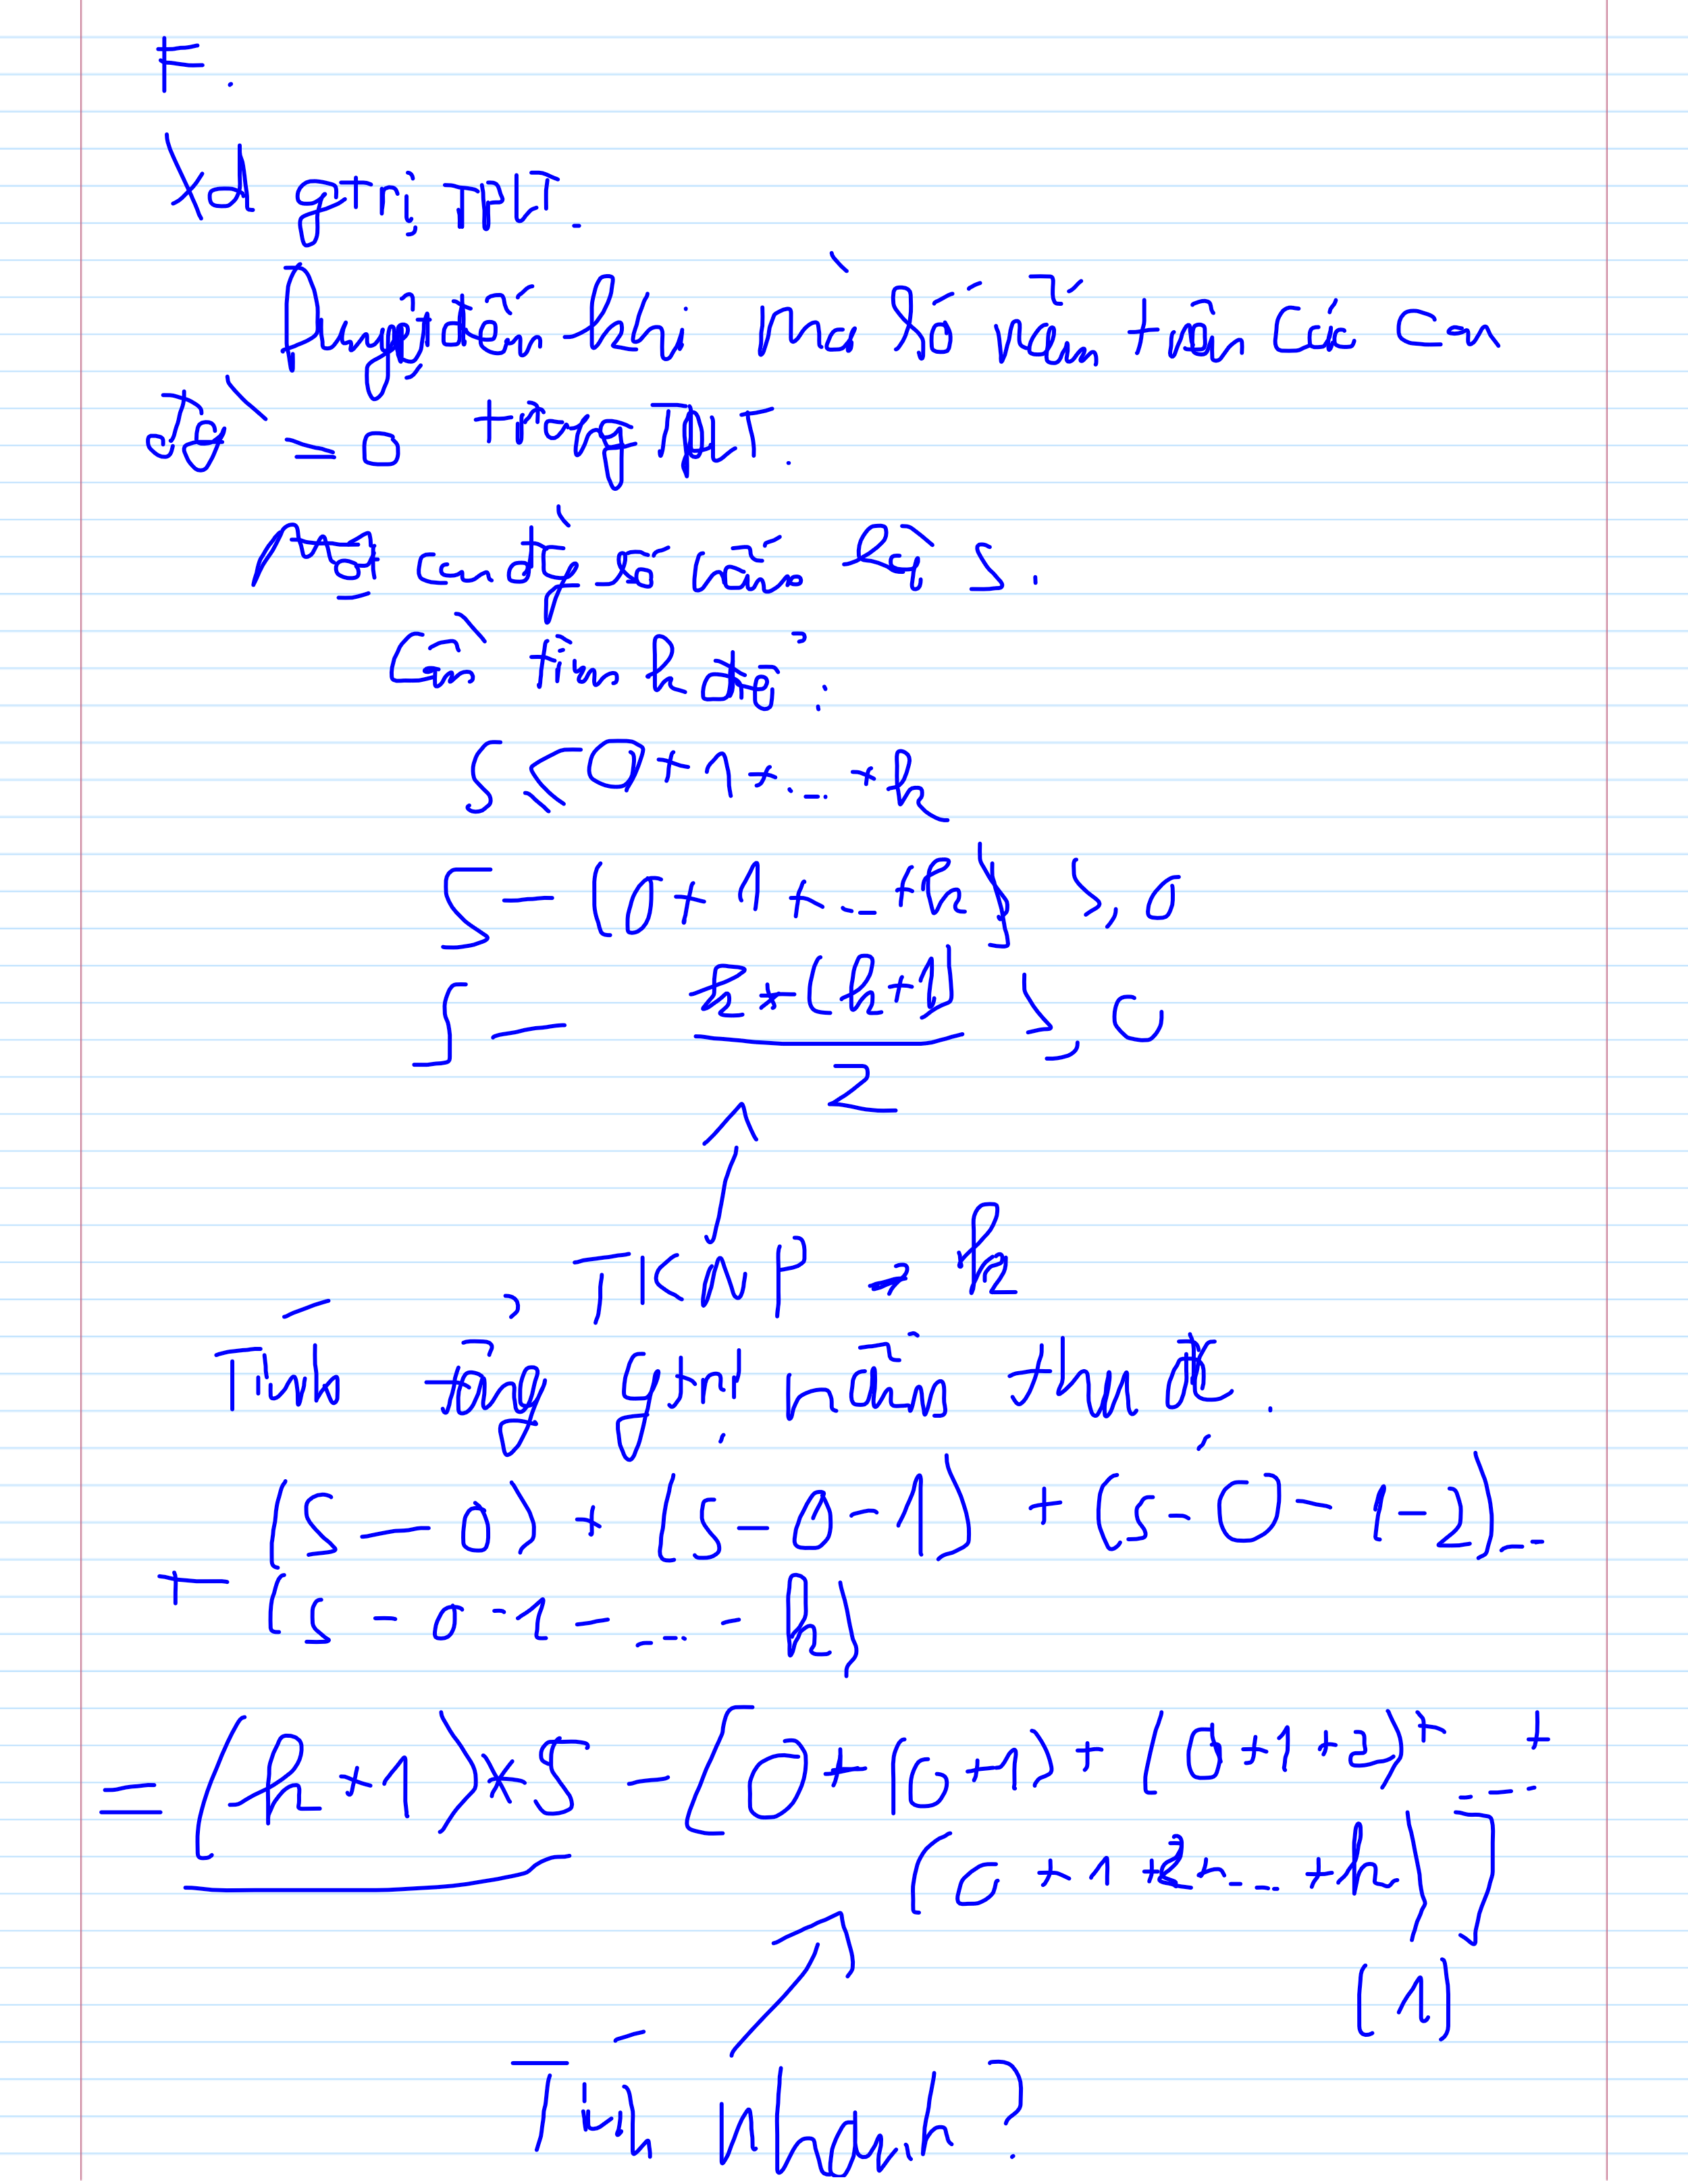 F.
Xđ gtrị TPLT.
Duyệt đến khi mà k
= 0 trong TPLT.
số nấm là S.
Cần tìm k để:
S ≤ 0 + 1 + ... + k
S - (0 + 1 + ... + k) ≥ 0
S - k * (k+1) / 2 ≥ 0
TKNP → k
Tính tổng gtrị nấm thu đc.
(S - 0) + (S - 0 - 1) + (S - 0 - 1 - 2) ...
+ (S - 0 - 1 - ... - k)
= (k + 1) * S - [0 + (0 + 1) + (0 + 1 + 2) + ... +
(0 + 1 + 2 + ... + k)]
(1)
Tính nhanh?